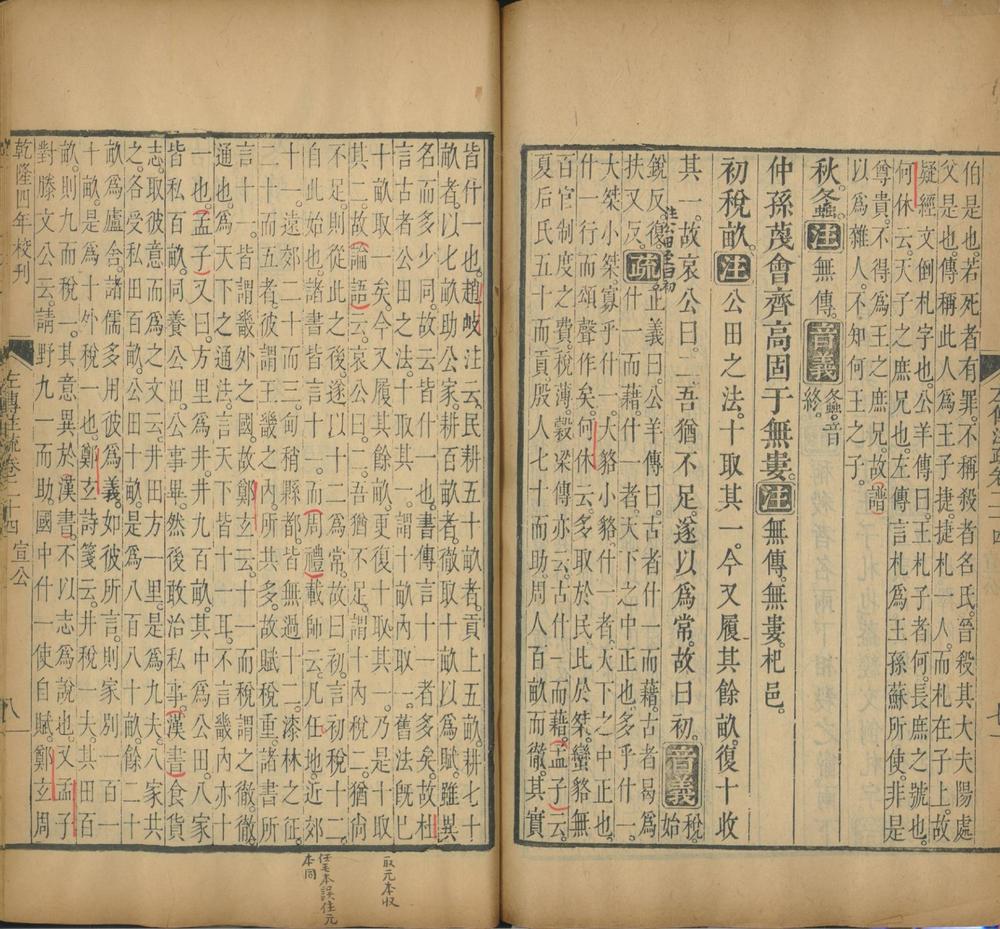 伯是也。若死者有罪。不稱殺者名氏。晉殺其大夫陽處
父是也。傳稱此人爲王子捷。捷札一人。而札在子上。故
疑經文倒札字也。公羊傳曰。王札子者何。長庶之號也。
何休云。天子之庶兄也。左傳言札爲王孫蘇所使。非是
尊貴。不得爲王之庶兄。故(譜)
以爲雜人。不知何王之子。
秋。螽。注無傳。音義螽。音終。
仲孫蔑會齊高固于無婁。注無傳。無婁。杞邑。
初稅畝。注公田之法。十取其一。今又履其餘畝。復十收
其一。故哀公曰。二吾猶不足。遂以爲常。故曰初。音義稅。始
銳反。復。扶又反。疏
注公田至曰初
正義曰。公羊傳曰。古者什一而藉。古者曷爲
什一而藉。什一者。天下之中正也。多乎什一。
大桀小桀。寡乎什一。大貉小貉。什一者。天下之中正也。
什一行而頌聲作矣。何休云。多取於民。比於桀。蠻貉無
百官制度之費。稅薄。穀梁傳亦云。古者什一而藉。(孟子)云。
夏后氏五十而貢。殷人七十而助。周人百畝而徹。其實
皆什一也。趙岐注云。民耕五十畝者。貢上五畝。耕七十
畝者。以七畝助公家。耕百畝者。徹取十畝以爲賦。雖異
名而多少同。故云皆什一也。書傳言十一者多矣。故杜
言古者公田之法。十取其一。謂十畝內取一。舊法旣已
十畝取一矣。今又履其餘畝。更復十取其一。乃是十取
其二。故(論語)云。哀公曰。二。吾猶不足。謂十內稅二。猶尚
不足。則從此之後。遂以十二爲常。故曰初。言初稅十二。
自此始也。諸書皆言十一。而(周禮)載師云。凡任地。近郊
十一。遠郊二十而三。甸稍縣都。皆無過十二。漆林之征。
二十而五者。彼謂王畿之內。所共多。故賦稅重。諸書所
言十一。皆謂畿外之國。故鄭玄云。十一而稅。謂之徹。徹。
通也。爲天下之通法。言天下皆十一耳。不言畿內亦十
一也。(孟子)又曰。方里爲井。井九百畝。其中爲公田。八家
皆私百畝。同養公田。公事畢。然後敢治私事。(漢書)食貨
志。取彼意而爲之文云。井田方一里。是爲九夫。八家共
之。各受私田百畝。公田十畝。是爲八百八十畝。餘二十
畝爲廬舍。諸儒多用彼爲義。如彼所言。則家別一百一
十畝。是爲十外稅一也。鄭玄詩箋云。井稅一夫。其田百
畝。則九而稅一。其意異於漢書。不以志爲說也。又孟子
對滕文公云。請野九一而助。國中什一使自賦。鄭玄周
乾隆四年校刊
左傳注疏卷二十四 宣公
八
取元本收
任毛本誤住元
本同